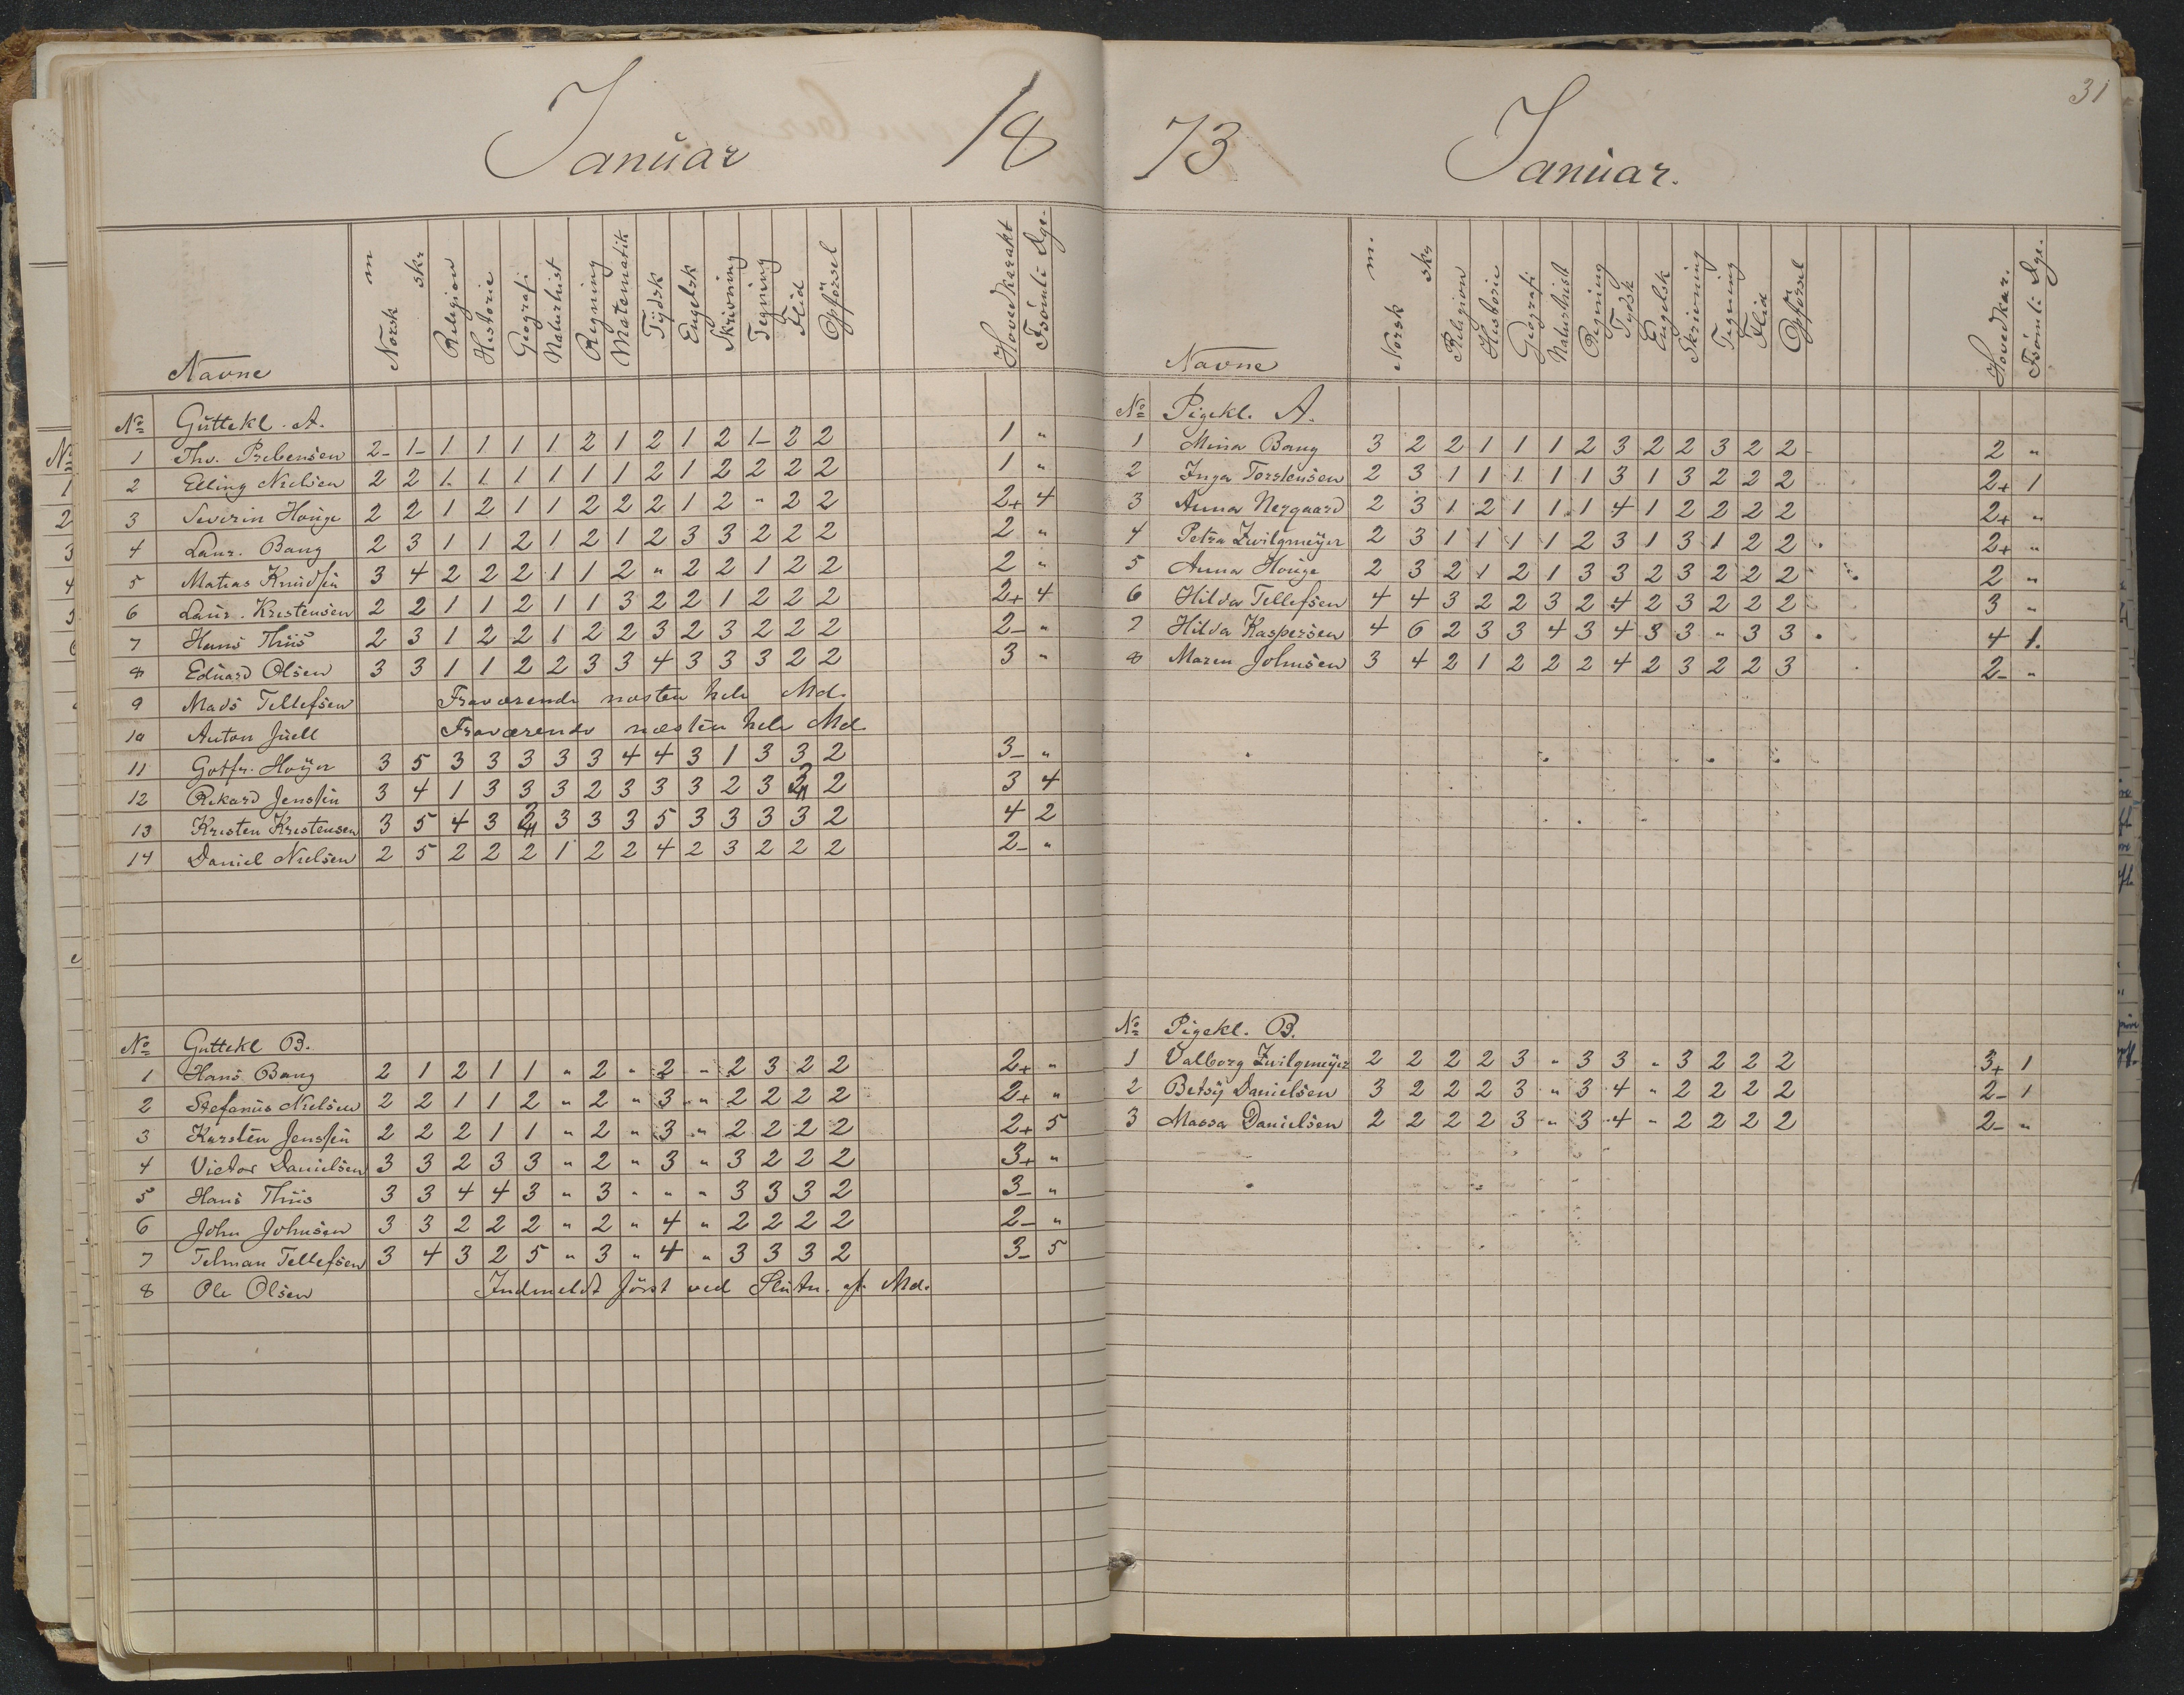 Januar 18
Navne Norsk m skr Religion Historie Geografi Naturhist Regning Matematik Tydsk Engelsk Skrivning Tegning Flid Opförsel Hovedkarakt Forsömte Dge.
No Guttekl. A.
1 Tho. Prebensen 2- 1- 1 1 1 1 2 1 2 1 2 1- 2 2 1 "
2 Elling Nielsen 2 2 1 1 1 1 1 1 2 1 2 2 2 2 1 "
3 Severin Houge 2 2 1 2 1 1 2 2 2 1 2 " 2 2 2+ 4
4 Laur. Bang 2 3 1 1 2 1 2 1 2 3 3 2 2 2 2 "
5 Matias Knudsen 3 4 2 2 2 1 1 2 " 2 2 1 2 2 2 "
6 Laur. Kristensen 2 2 1 1 2 1 1 3 2 2 1 2 2 2 2+ 4
7 Hans Thiis 2 3 1 2 2 1 2 2 3 2 3 2 2 2 2- "
8 Eduard Olsen 3 3 1 1 2 2 3 3 4 3 3 3 2 2 3 "
9 Mads Tellefsen Fraværende næsten hele Md.
10 Anton Juell Fraværende næsten hele Md.
11 Gotfr. Høyer 3 5 3 3 3 3 3 4 4 3 1 3 3 2 3- "
12 Rikard Jenssen 3 4 1 3 3 3 2 3 3 3 2 3 2 2 3 4
13 Kristen Kristensen 3 5 4 3 2 3 3 3 5 3 3 3 3 2 4 2
14 Daniel Nielsen 2 5 2 2 2 1 2 2 4 2 3 2 2 2 2- "
No Guttekl B.
1 Hans Bang 2 1 2 1 1 " 2 " 2 " 2 3 2 2 2+ "
2 Stefanus Nielsen 2 2 1 1 2 " 2 " 3 " 2 2 2 2 2+ "
3 Karsten Jenssen 2 2 2 1 1 " 2 " 3 " 2 2 2 2 2+ 5
4 Victor Danielsen 3 3 2 3 3 " 2 " 3 " 3 2 2 2 3+ "
5 Hans Thiis 3 3 4 4 3 " 3 " " " 3 3 3 2 3- "
6 John Johnsen 3 3 2 2 2 " 2 " 4 " 2 2 2 2 2- "
7 Telman Tellefsen 3 4 3 2 5 " 3 " 4 " 3 3 3 2 3- 5
8 Ole Olsen Indmeldt först ved Slutn. af Md.
31
73 Januar.
Navne Norsk m. skr Religion Historie Geografi Naturhist Regning Tydsk Engelsk Skrivning Tegning Flid Opförsel Hovedkar. Forsömte Dge.
No Pigekl. A.
1 Mina Bang 3 2 2 1 1 1 2 3 2 2 3 2 2 2 "
2 Inga Torstensen 2 3 1 1 1 1 1 3 1 3 2 2 2 2+ 1
3 Anna Nergaard 2 3 1 2 1 1 1 4 1 2 2 2 2 2+ "
4 Petra Zwilgmeyer 2 3 1 1 1 1 2 3 1 3 1 2 2 2+ "
5 Anna Houge 2 3 2 1 2 1 3 3 2 3 2 2 2 2 "
6 Hilda Tellefsen 4 4 3 2 2 3 2 4 2 3 2 2 2 3 "
7 Hilda Kaspersen 4 6 2 3 3 4 3 4 3 3 " 3 3 4 1.
8 Maren Johnsen 3 4 2 1 2 2 2 4 2 3 2 2 3 2- "
No Pigekl. B.
1 Valborg Zwilgmeyer 2 2 2 2 3 " 3 3 " 3 2 2 2 3+ 1
2 Betsy Danielsen 3 2 2 2 3 " 3 4 " 2 2 2 2 2- 1
3 Massa Danielsen 2 2 2 2 3 " 3 4 " 2 2 2 2 2- "